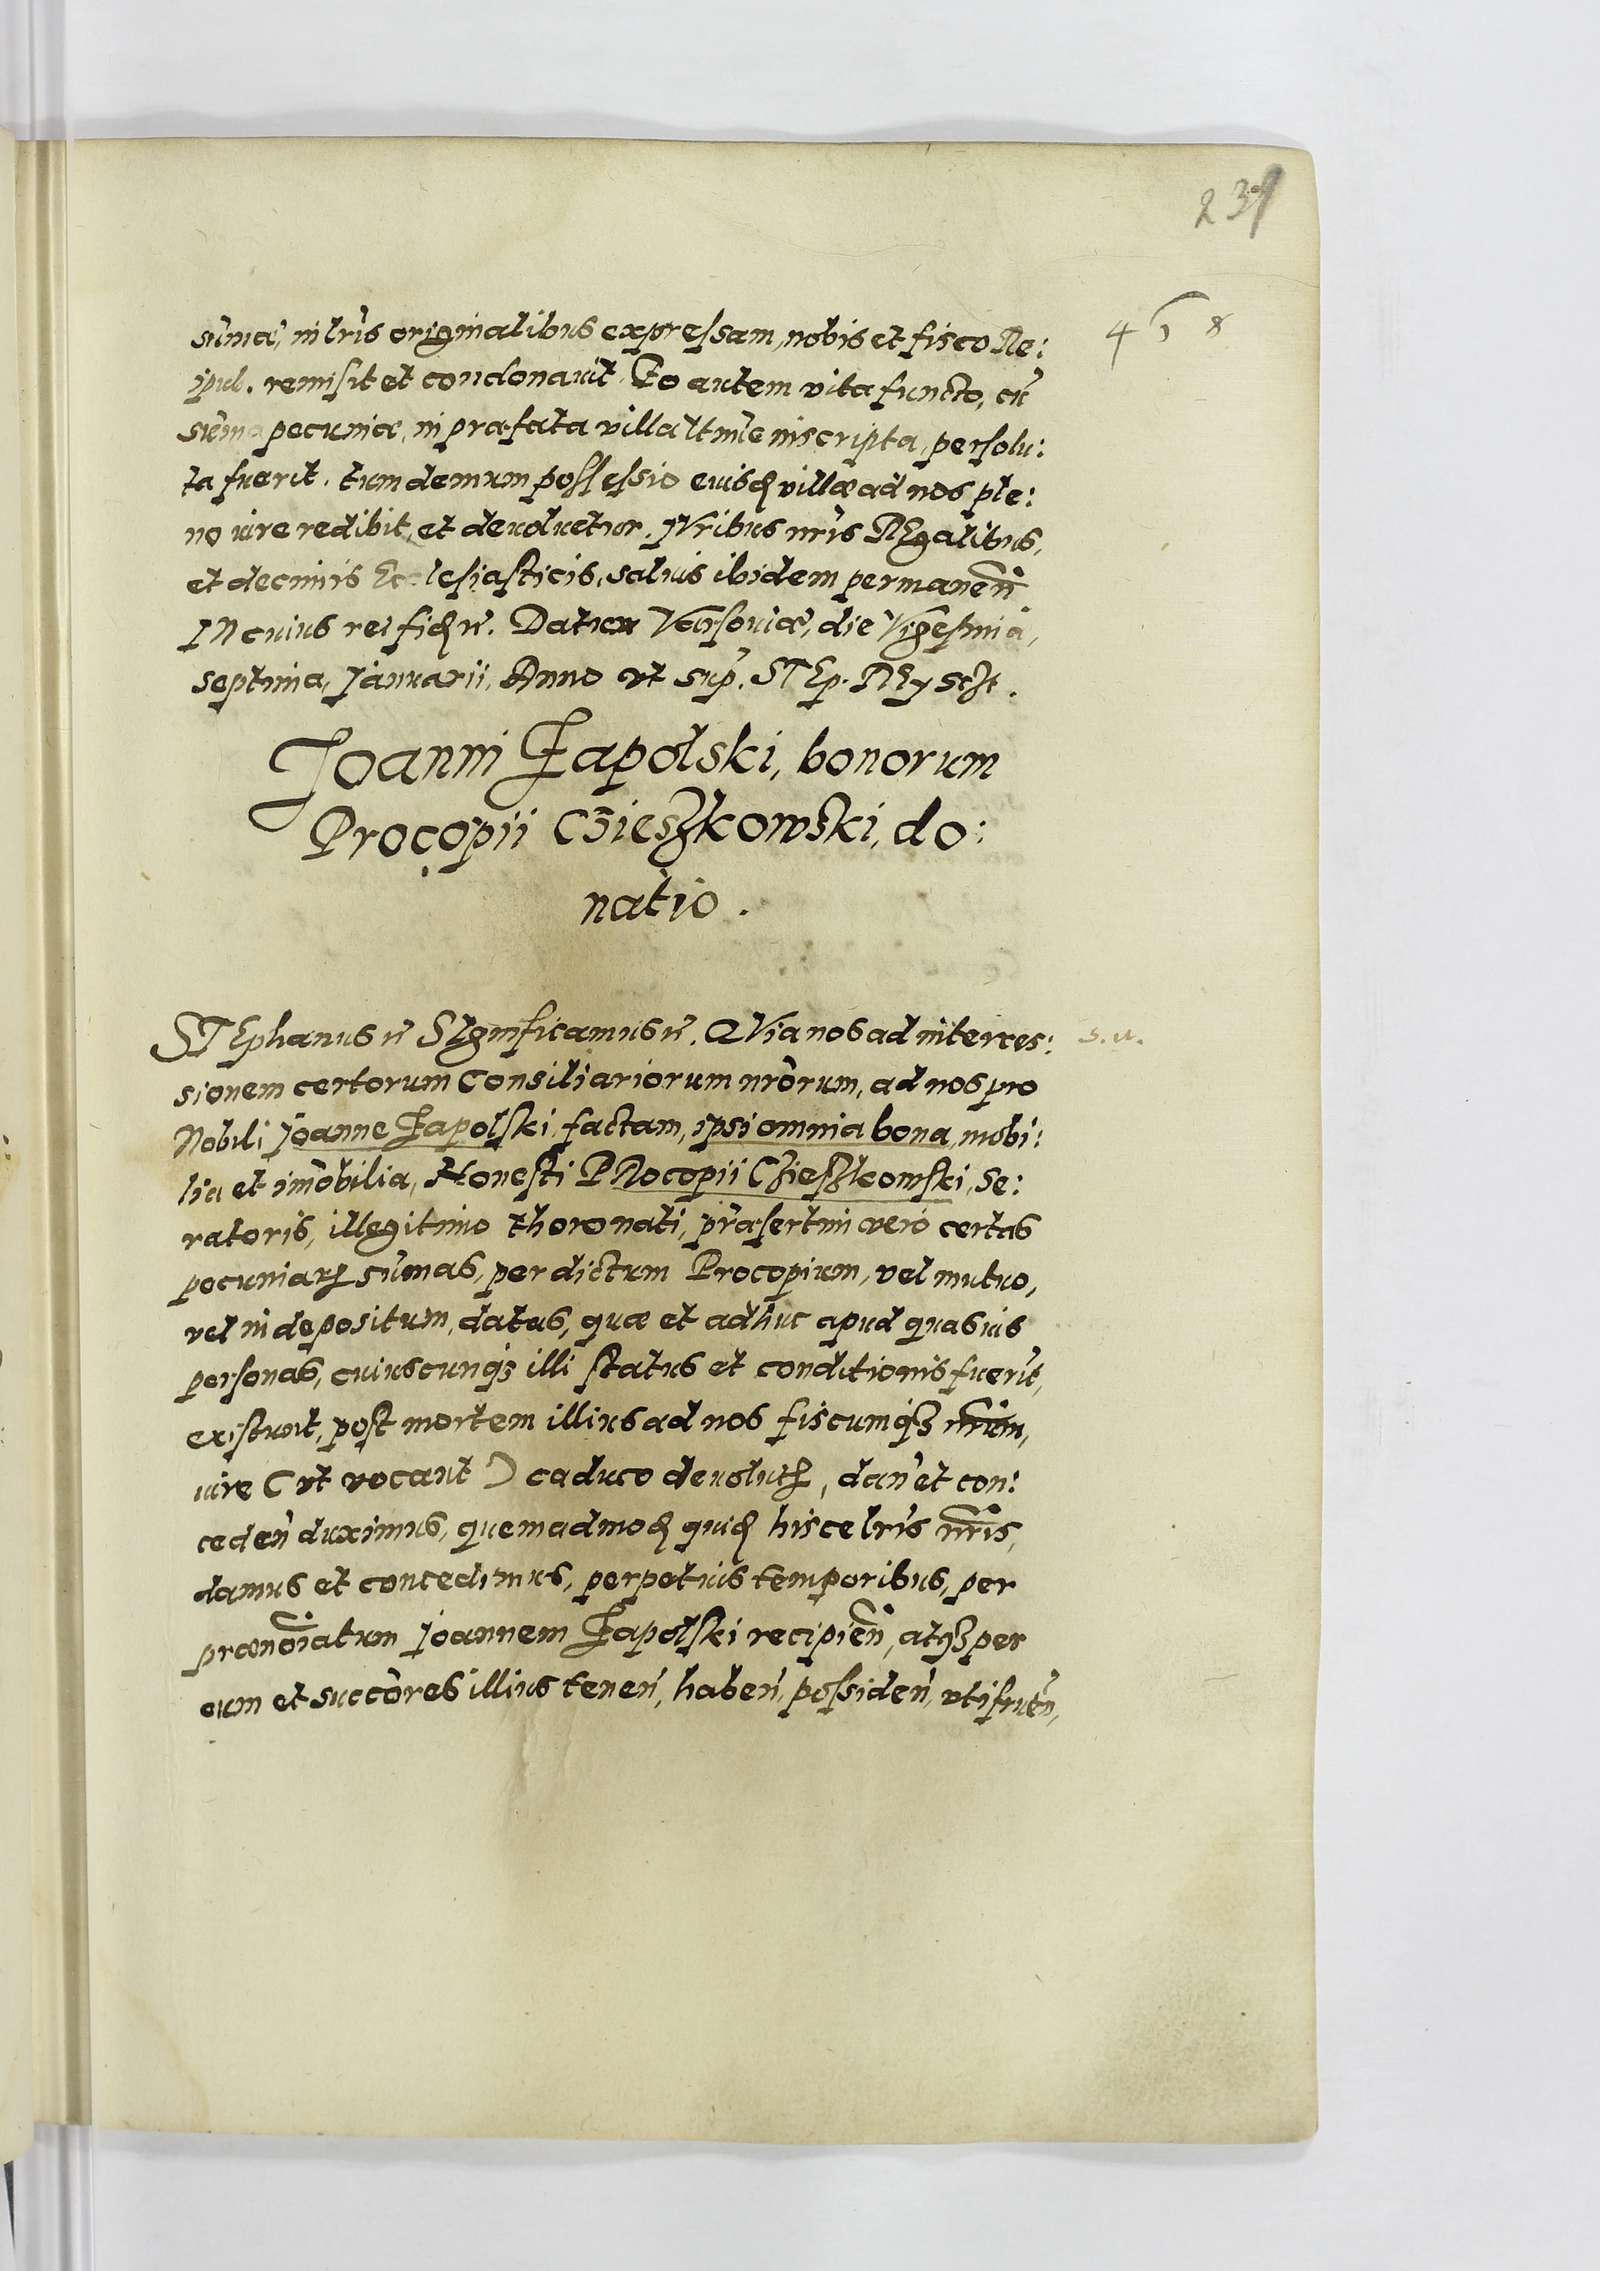 239
458
sum̄ā, in lr̄is originalibus expressam, nobis et fisco Re:
ipub. remisit et condonavit. Eo autem vita functo, cū
sum̄a pecuniæ, in præfata villa ltm̄e inscripta, persolu:
ta fuerit, tum demum possessio eiusd villæ ad nos ple:
no iure redibit, et devoluetur. IVribus nr̄is REgalibus,
et decimis Ecclesiasticis, saluis ibidem permaneñ
IN cuius rei fid etc. Datum Varsouiæ, die Vigesima,
septima, Januarii, Anno vt sup. STEp. REx sst.
Joanni Zapolski, bonorum
Procopii Czieszkowski, do:
natio.
STEphanus etc SIgnificamus etc. QVia nos ad interces:
sionem certorum Consiliariorum nr̄orum, ad nos pro
Nobili Joanne Zapolski, factam, ipsi omnia bona, mobi:
lia et im̄obilia, Honesti PRocopii Czieszkowski, Se:
ratoris, illegitimo thoro nati, præsertim vero certas
pecuniarꝝ sum̄as, per dictum Procopium, vel mutuo,
vel in depositum, datas, quæ et adhuc apud quasuis
personas, cuiuscunqꝫ illi status et conditionis fuerīt,
existunt, post mortem illius ad nos fiscumqꝫ nr̄um,
iure (vt vocant) caduco deuolut, dañ et con:
cedeñ duximus, quemadmod quid hisce lr̄is nr̄is,
damus et concedimus, perpetuis temporibus, per
prænōiatum Joannem Zapolski recipieñ, atqꝫ per
eum et succōres illius teneñ, habeñ, possideñ, vtifrueñ,